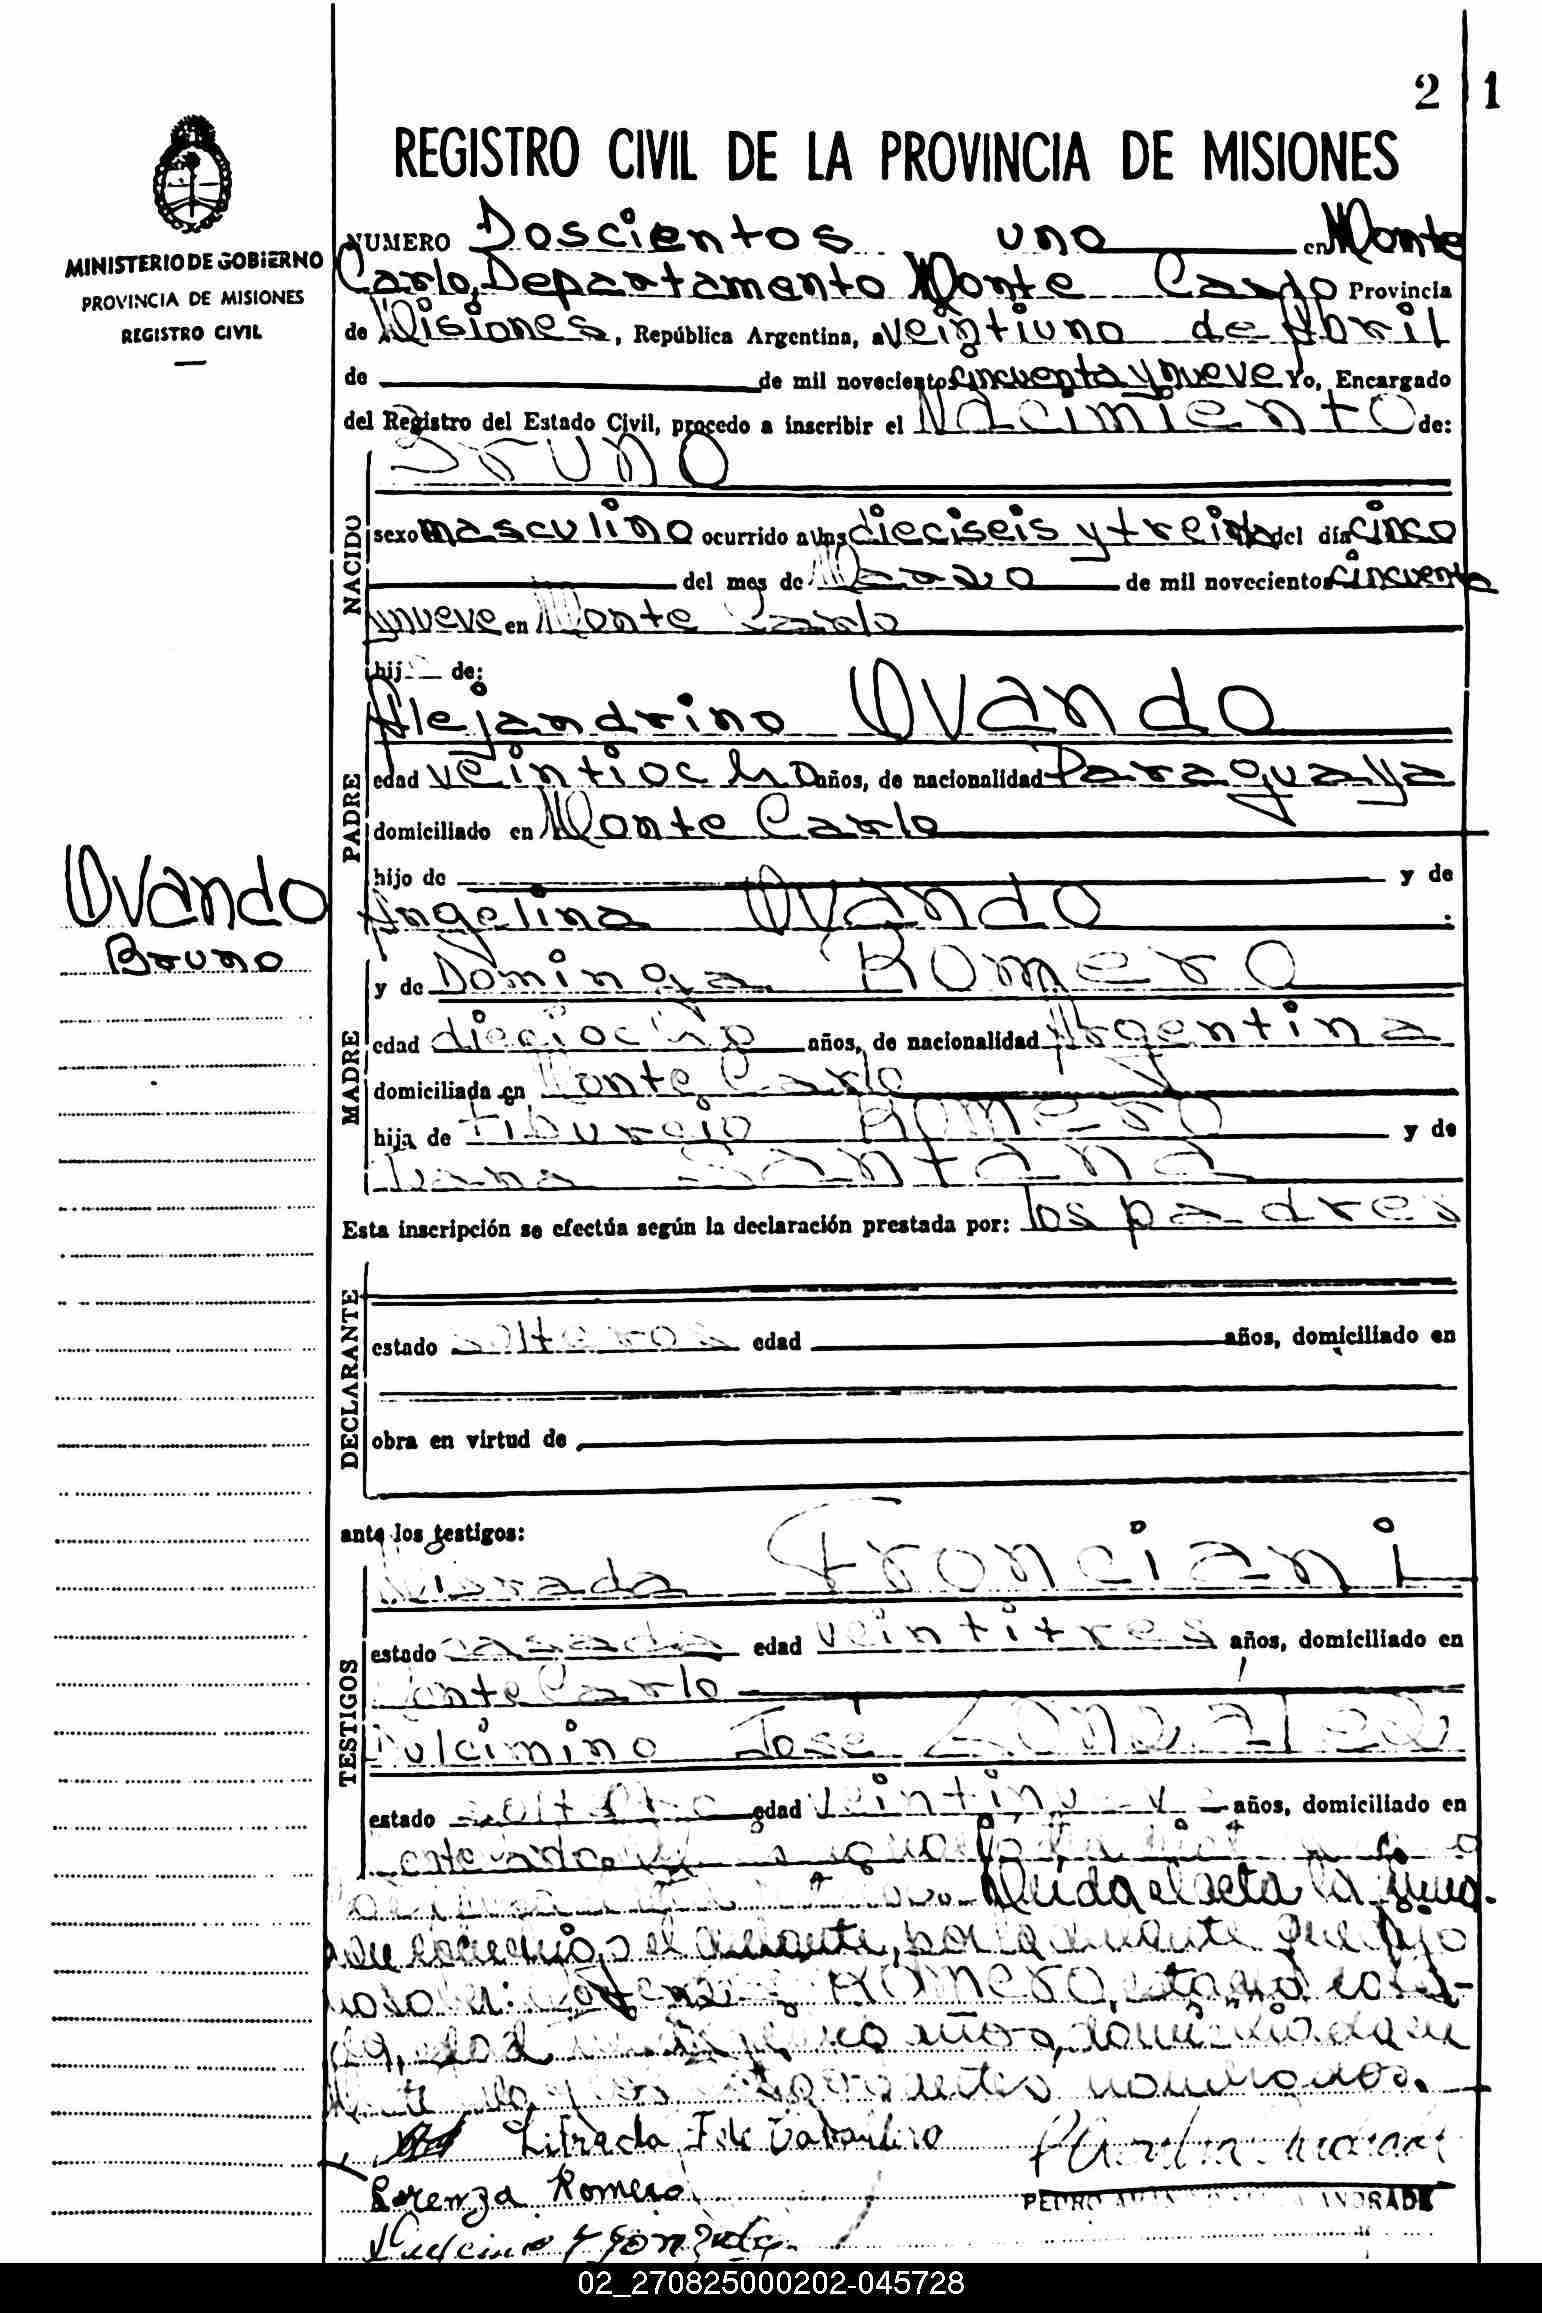 2 1
REGISTRO CIVIL DE LA PROVINCIA DE MISIONES
MINISTERIO DE GOBIERNO
PROVINCIA DE MISIONES
REGISTRO CIVIL
NUMERO Doscientos uno en Monte
Carlo, Departamento Monte Carlo Provincia
de Misiones, República Argentina, a veintiuno de Abril
de de mil novecientos cincuenta y nueve Yo, Encargado
del Registro del Estado Civil, procedo a inscribir el Nacimiento de:
NACIDO
Bruno
sexo masculino ocurrido a las dieciseis y treinta del día cinco
del mes de Marzo de mil novecientos cincuenta
y nueve en Monte Carlo
hijo de:
PADRE
Alejandrino Ovando
edad veintiocho años, de nacionalidad Paraguaya
domiciliado en Monte Carlo
hijo de y de
Angelina Ovando
Ovando
Bruno
MADRE
y de Dominga Romero
edad dieciocho años, de nacionalidad Argentina
domiciliada en Monte Carlo
hija de Tiburcio Romero y de
Juana Santana
Esta inscripción se efectúa según la declaración prestada por: los padres
DECLARANTE
estado solteros edad años, domiciliado en
obra en virtud de
ante los testigos:
TESTIGOS
Librada Fronciani
estado casada edad veintitres años, domiciliado en
Monte Carlo
Dulcimino José González
estado soltero edad veintinueve años, domiciliado en
Leida el acta la
el por la que dijo
Romero, estado
edad años, domiciliada en
nombrados.
Librada F. de
Lorenza Romero
PEDRO ANDRADE
02_270825000202-045728